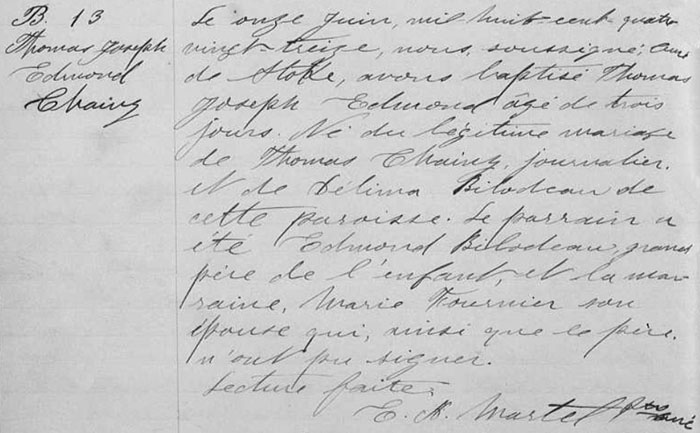 B. 13
Thomas Joseph
Edmond
Chainey
Le onze juin, mil huit-cent-quatre
vingt-treize, nous, soussigné, curé
de Stoke, avons baptisé Thomas
Joseph Edmond âgé de trois
jours. Né du légitime mariage
de Thomas Chainey, journalier,
et de Délima Bilodeau de
cette paroisse. Le parrain a
été Edmond Bilodeau, grand
père de l'enfant, et la mar
raine, Marie Fournier son
épouse qui, ainsi que le père,
n'ont pu signer.
Lecture faite.
E. H. Martel Ptre curé